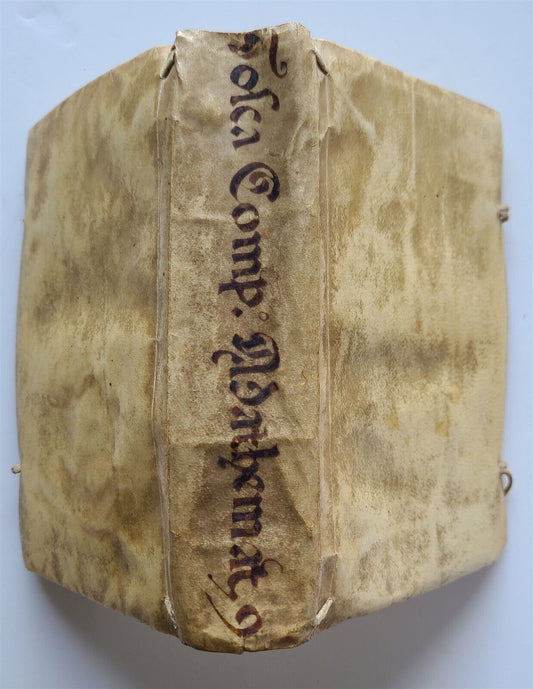 Tosca Comp. Mathemat. 9